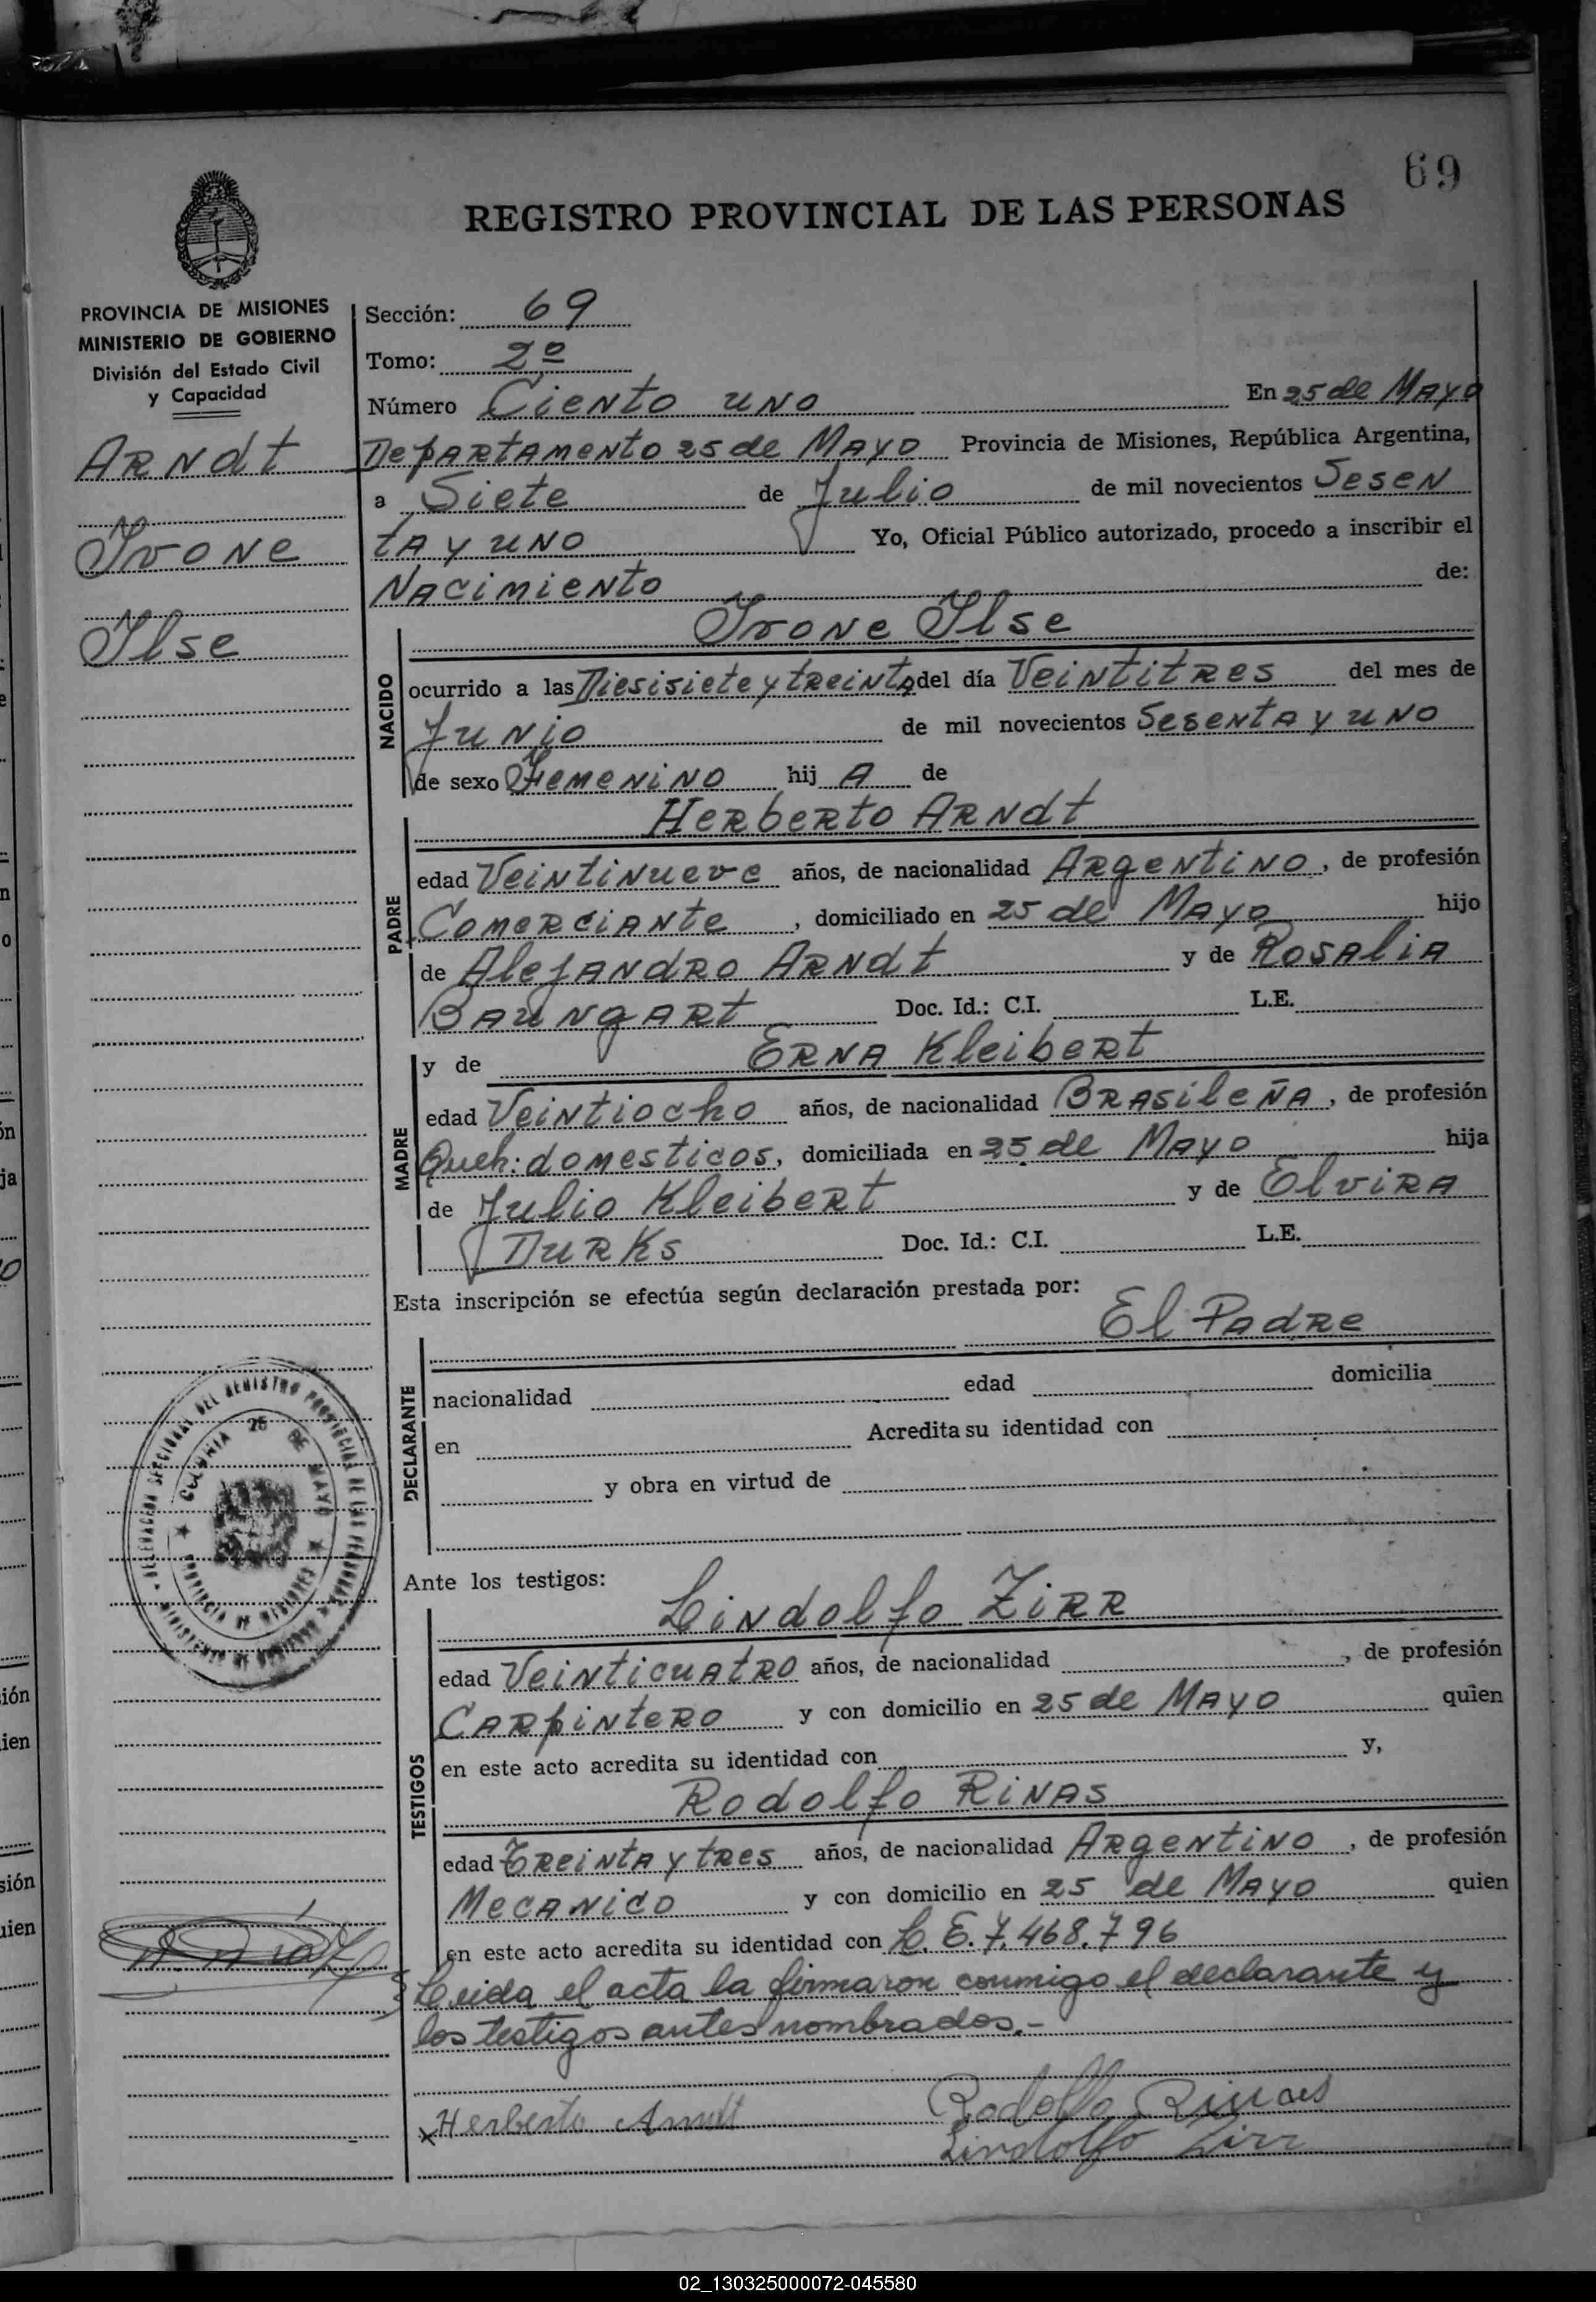 69
REGISTRO PROVINCIAL DE LAS PERSONAS
PROVINCIA DE MISIONES
MINISTERIO DE GOBIERNO
División del Estado Civil
y Capacidad
Arndt
Ivone
Ilse
Sección: 69
Tomo: 2º
Número Ciento uno En 25 de Mayo
Departamento 25 de Mayo Provincia de Misiones, República Argentina,
a Siete de Julio de mil novecientos Sesen
ta y uno Yo, Oficial Público autorizado, procedo a inscribir el
Nacimiento de:
NACIDO
Ivone Ilse
ocurrido a las Diesisiete y treinta del día Veintitres del mes de
Junio de mil novecientos Sesenta y uno
de sexo Femenino hij A de
PADRE
Herberto Arndt
edad Veintinueve años, de nacionalidad Argentino, de profesión
Comerciante, domiciliado en 25 de Mayo hijo
de Alejandro Arndt y de Rosalia
Baungart Doc. Id.: C.I. L.E.
MADRE
y de Erna Kleibert
edad Veintiocho años, de nacionalidad Brasileña, de profesión
Queh: domesticos, domiciliada en 25 de Mayo hija
de Julio Kleibert y de Elvira
Durks Doc. Id.: C.I. L.E.
Esta inscripción se efectúa según declaración prestada por:
El Padre
DECLARANTE
nacionalidad edad domicilia
en Acredita su identidad con
y obra en virtud de
DELEGACION SECCIONAL DEL REGISTRO PROVINCIAL DE LAS PERSONAS
MINISTERIO DE GOBIERNO
COLONIA 25 DE MAYO
PROVINCIA DE MISIONES
Ante los testigos:
TESTIGOS
Lindolfo Zirr
edad Veinticuatro años, de nacionalidad , de profesión
Carpintero y con domicilio en 25 de Mayo quien
en este acto acredita su identidad con y,
Rodolfo Rinas
edad Treinta y tres años, de nacionalidad Argentino, de profesión
Mecanico y con domicilio en 25 de Mayo quien
en este acto acredita su identidad con L. E. 7.468.796
Leida el acta la firmaron conmigo el declarante y
los testigos antes nombrados.-
x Herberto Arndt Rodolfo Rinas
Lindolfo Zirr
02_130325000072-045580